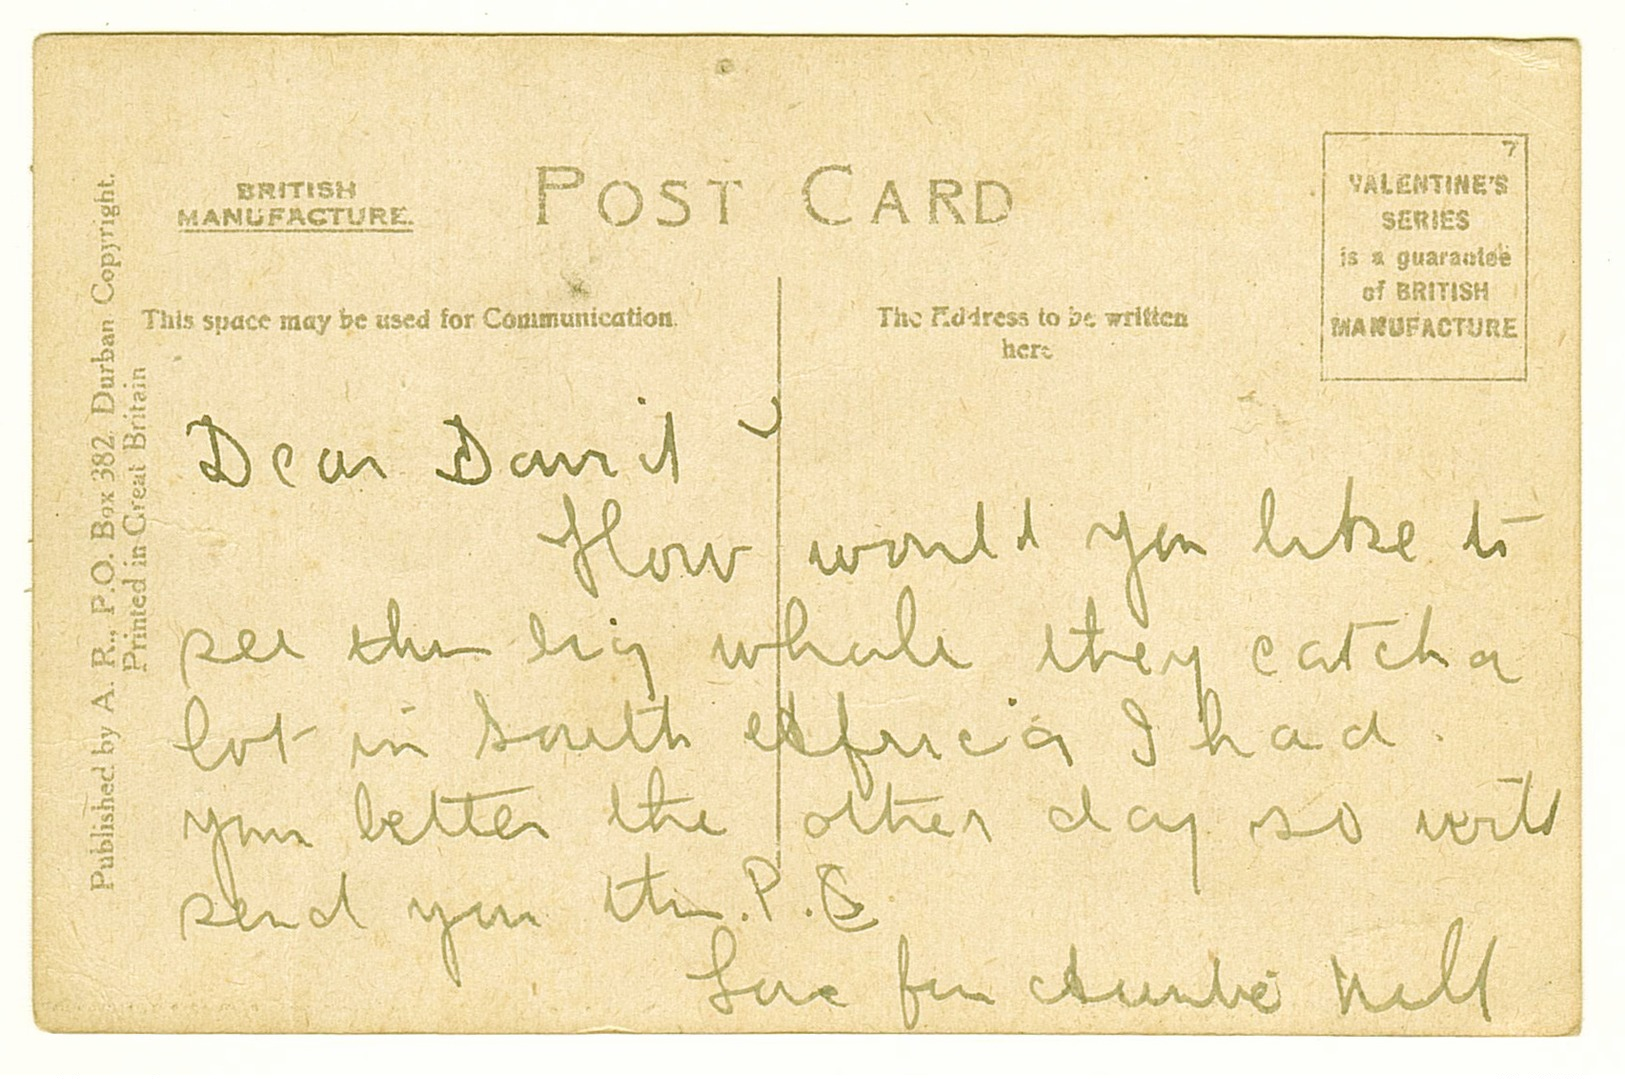 BRITISH
MANUFACTURE.
POST CARD
7
VALENTINE'S
SERIES
is a guarantee
of BRITISH
MANUFACTURE
This space may be used for Communication.
The Address to be written
here
Published by A. R., P.O. Box 382, Durban Copyright.
Printed in Great Britain
Dear David
How would you like to
see this big whale they catch a
lot in South Africa I had
your letter the other day so will
send you this. P.C.
Love from Auntie Nell